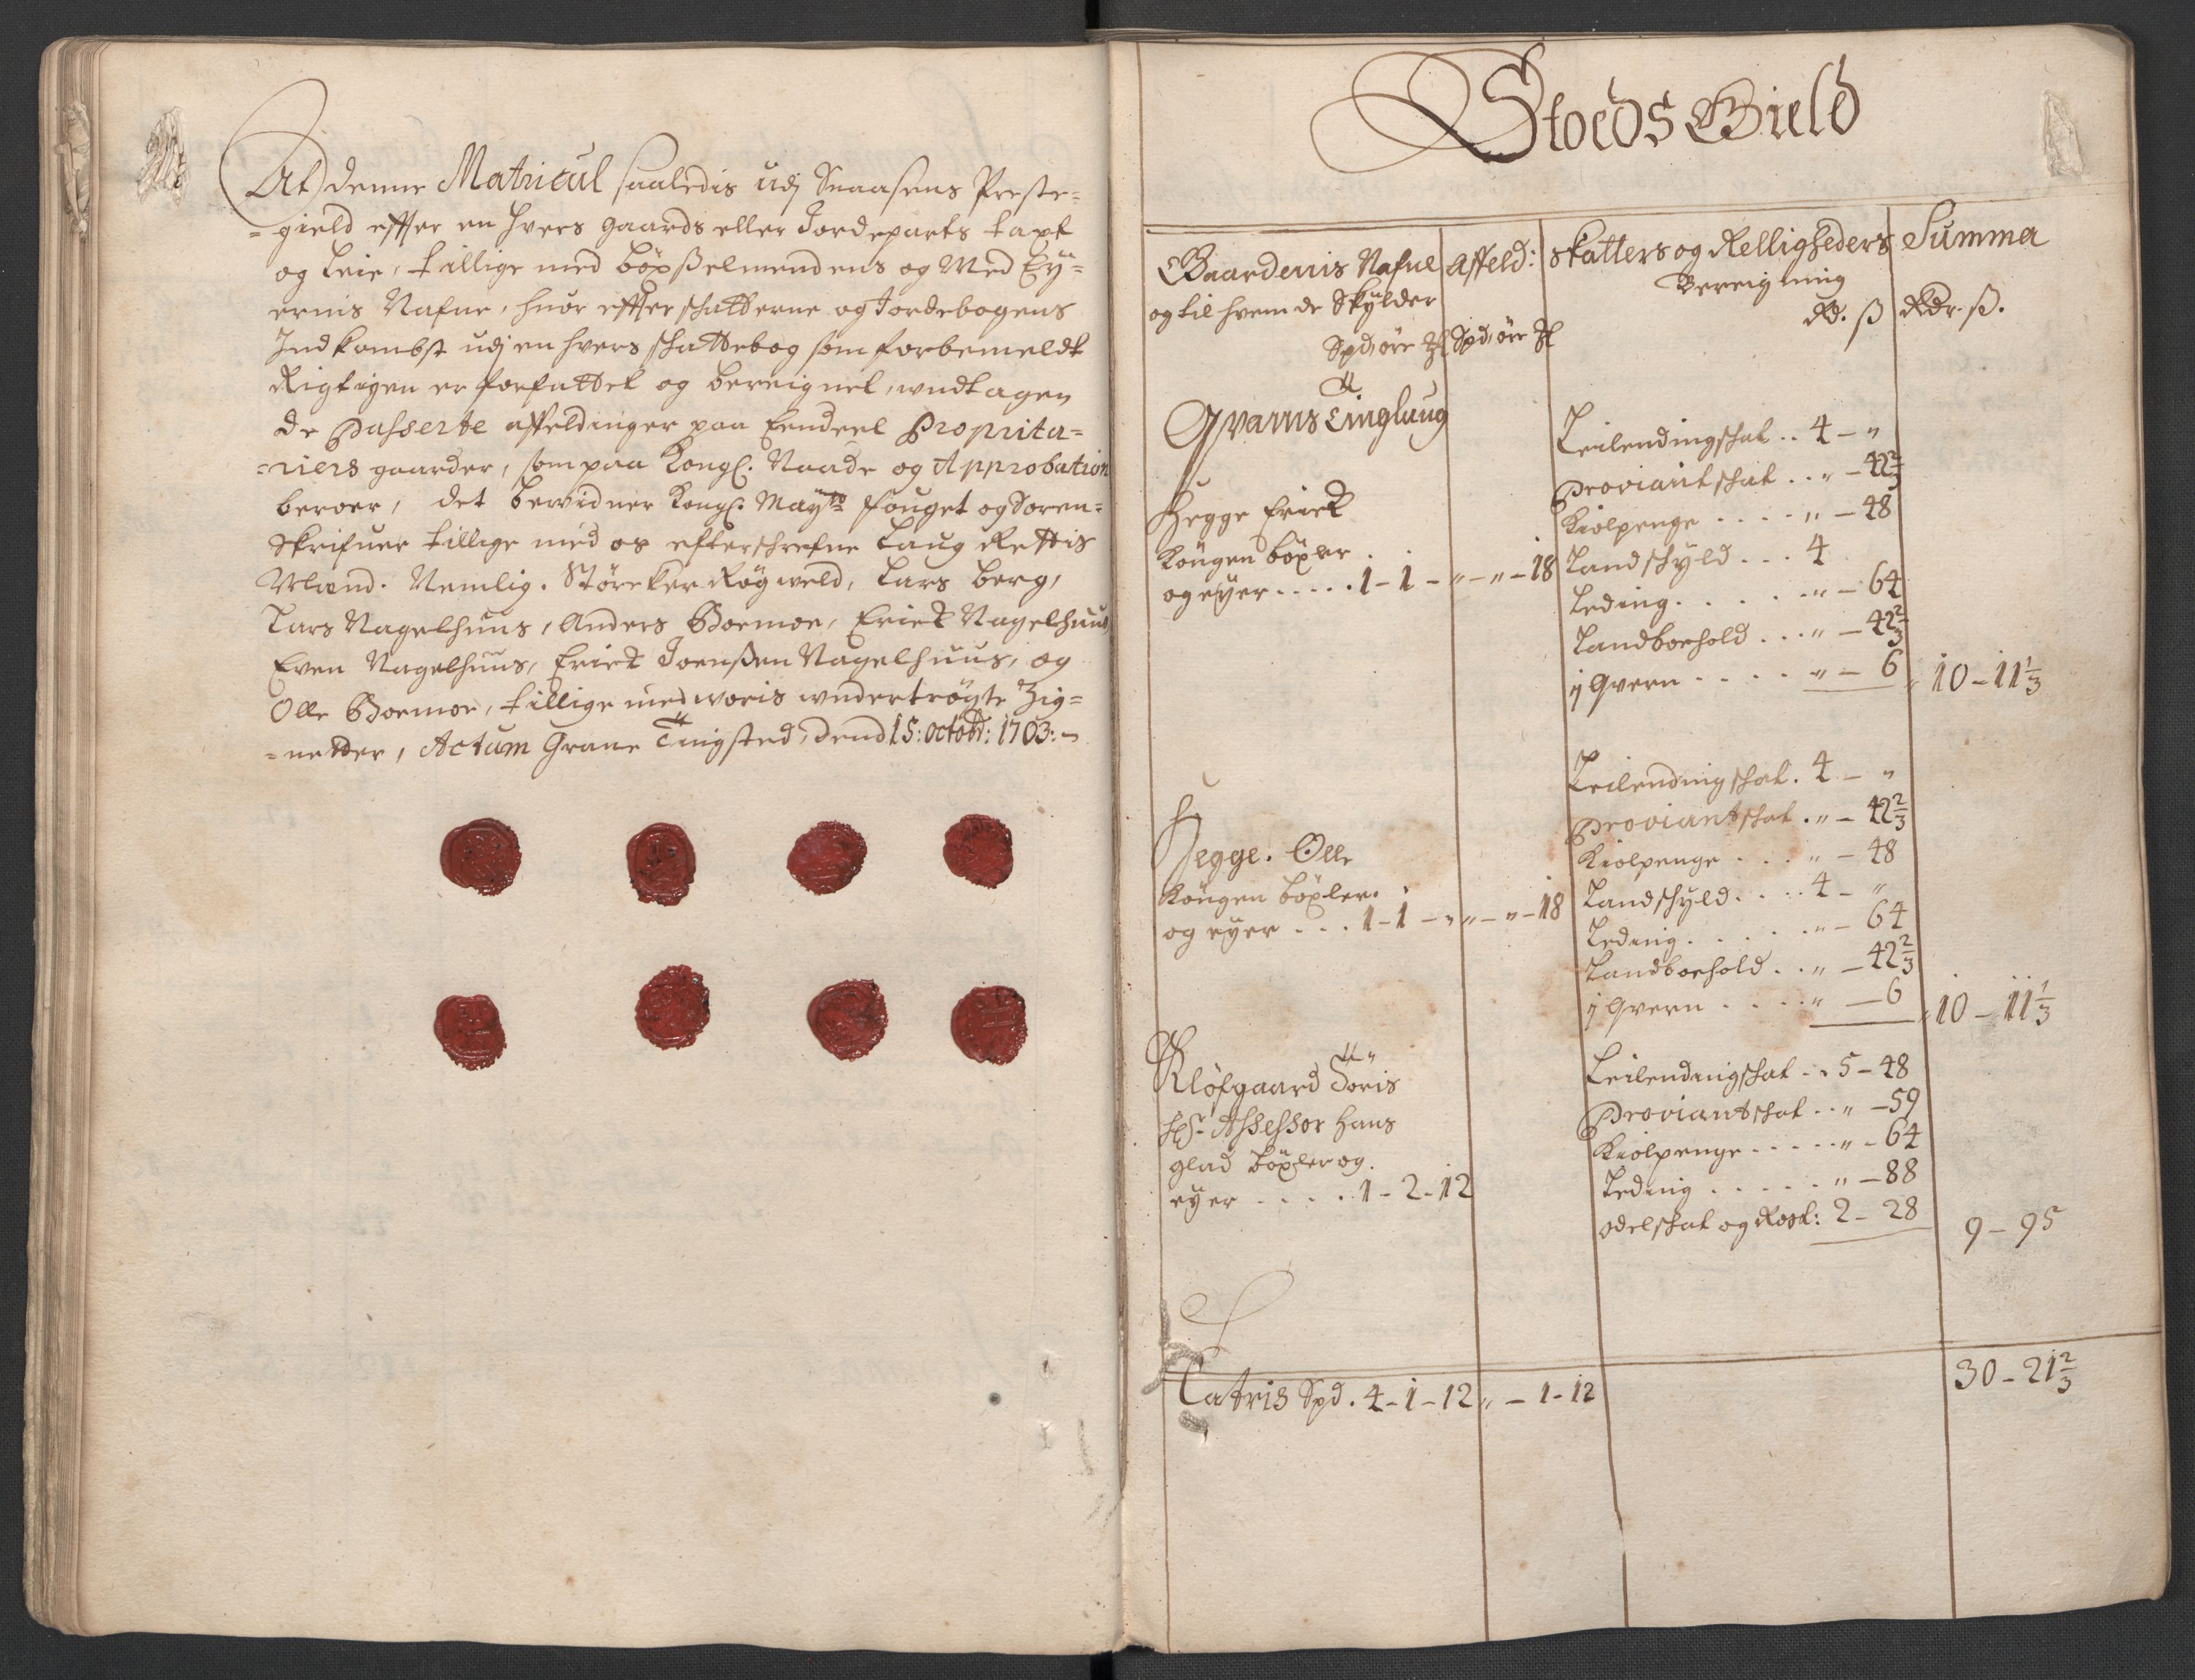 At denne Matricul saaledis udj Snaasens Preste-
-gield effter en hvers gaards eller Jordeparts taxt
og leie, tillige med böxselmendens og Med Ey-
ernis Nafne, huor effter schatterne og Jordebogens
Indkombst udj en hvers schattebog som forbemeldt
Rigtigen er forfattet og bereignet, undtagen
de Passerte affeldinger paa Eendeel Proprita-
-riers gaarder, som paa Kongl. Naade og Approbation
beroer, det bevidner Kongl. Mayts fouget og Soren-
skrifuer tillige med os efterschrefne Laug Rettis
Mænd. Nemlig. Störcker Rögweld, Lars Berg,
Lars Nagelhuus, Anders Boemoe, Erick Nagelhuus
Even Nagelhuus, Erick Joenssen Nagelhuus, og
Olle Boemoe, tillige med voris undertrögte Zig-
-netter, Actum Grane Tingsted, dend 15: octobr: 1703:
Stoeds Gield
Gaardernis Nafne
og til hvem de Skylder
Spd, öre
Affeld:
Spd, öre
Skatters og Relligheders
Bereigning
Rd. ß
Summa
Rdr. ß.
Qvams Tinglaug
Hegge Erick
Kongen böxler
og eyer ..... 1 - 1 - „ - „ - 18
Leilendingschat .. 4 - „
Proviantschat .. „ - 42 2/3
Kiolpenge .... „ - 48
Landschyld ... 4
Leding ..... „ - 64
Landboehold ... „ - 42 2/3
1 Qvern .... „ - 6
10 - 11 1/3
Hegge. Olle
Kongen böxler
og eyer ... 1 - 1 - „ „ - „ - 18
Leilendingschat . 4 - „
Proviantschat . „ - 42 2/3
Kiolpenge ... „ - 48
Landschyld .... 4 - „
Leding ..... „ - 64
Landboehold .. „ - 42 2/3
1 Qvern .... „ - 6
10 - 11 1/3
Klöfgaard Joris
Hr Assessor Hans
glad böxler og
eyer .... 1 - 2 - 12
Leilendingschat .. 5 - 48
Proviantschat .. „ - 59
Kiolpenge ..... „ - 64
Leding ..... „ - 88
odelschat og Rost: 2 - 28
9 - 95
Latris Spd. 4 - 1 - 12 „ - 1 - 12
30 - 21 2/3